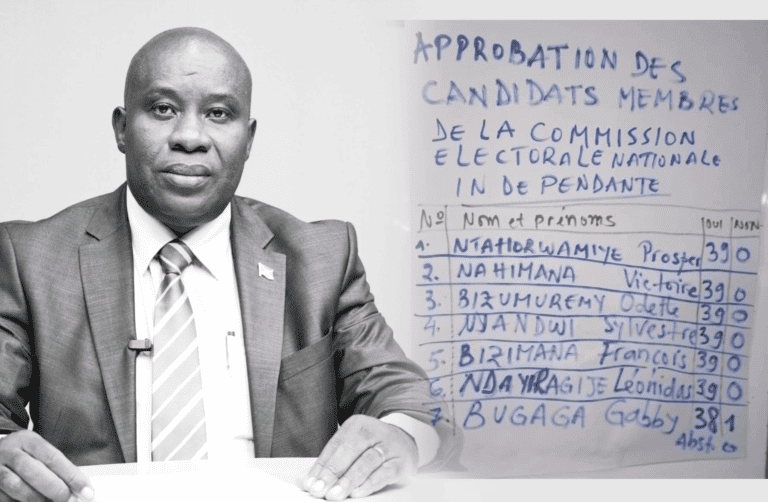 APPROBATION DES
CANDIDATS MEMBRES
DE LA COMMISSION
ELECTORALE NATIONALE
INDEPENDANTE
No Nom et prénoms OUI NON
1. NTAHORWAMIYE Prosper 39 0
2. NAHIMANA Victoire 39 0
3. BIZUMUREMY Odette 39 0
4. NYANDWI Sylvestre 39 0
5. BIZIMANA François 39 0
6. NDAYIRAGIJE Léonidas 39 0
7. BUGAGA Gabby 38 1
Abst. 0